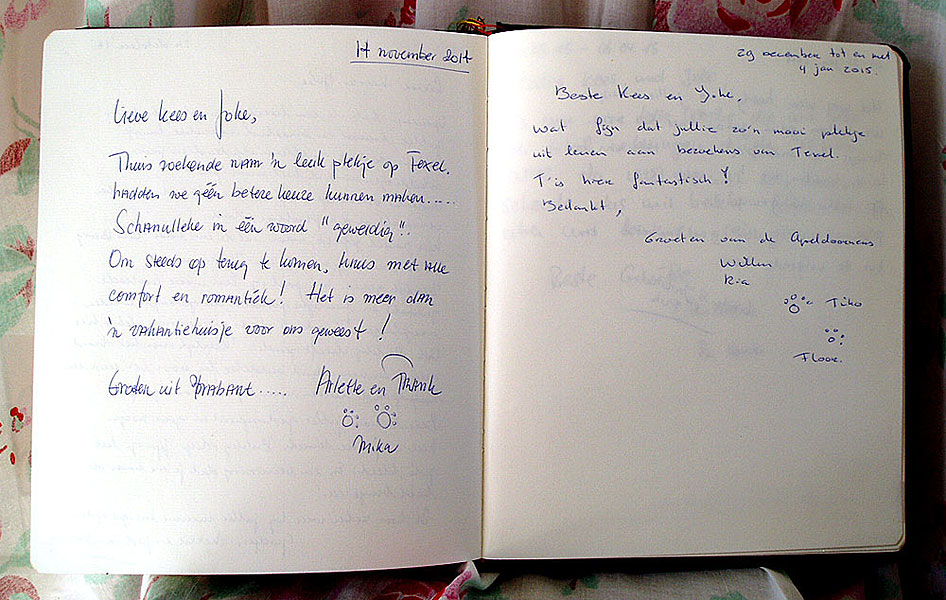 14 november 2014
Lieve Kees en Joke,
Thuis zoekende naar 'n leuk plekje op Texel.
hadden we géén betere keuze kunnen maken.....
Schanulleke in één woord "geweldig".
Om steeds op terug te komen, knus met alle
comfort en romantiek! Het is meer dan
'n vakantiehuisje voor ons geweest!
Groeten uit Brabant..... Arlette en Frank
Mika
29 december tot en met
4 jan 2015.
Beste Kees en Joke,
wat fijn dat jullie zo'n mooi plekje
uit lenen aan bezoekers van Texel.
T'is hier fantastisch!
Bedankt,
Groeten van de Apeldoorners
Willem
Ria
Tiko
Floor.